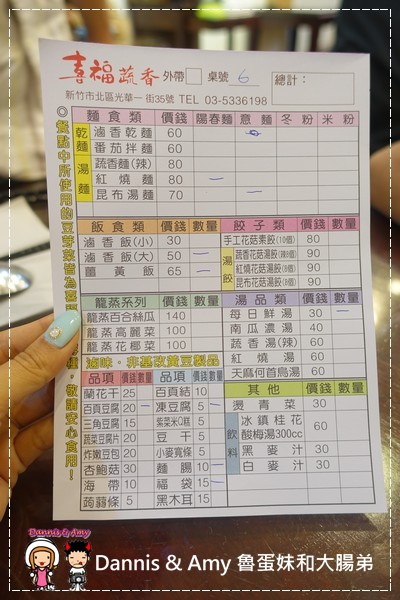 喜福蔬香 外帶□ 桌號 6 總計：
新竹市北區光華一街35號 TEL 03-5336198
麵食類 價錢 陽春麵 意麵 冬粉 米粉
乾麵
滷香乾麵 60
番茄拌麵 60
湯麵
蔬香麵(辣) 80
紅燒麵 80
昆布湯麵 70
飯食類 價錢 數量
滷香飯(小) 30
滷香飯(大) 50
薑黃飯 65
餃子類 價錢 數量
湯餃
手工花菇素餃(10個) 80
蔬香花菇湯餃(辣8個) 90
紅燒花菇湯餃(8個) 90
昆布花菇湯餃(8個) 90
龍蒸系列 價錢 數量
龍蒸百合絲瓜 140
龍蒸高麗菜 100
龍蒸花椰菜 100
湯品類 價錢 數量
每日鮮湯 30
南瓜濃湯 40
蔬香湯(辣) 60
紅燒湯 60
天麻何首烏湯 60
滷味。非基改黃豆製品
品項 價錢 數量 品項 價錢 數量
蘭花干 25 百頁結 10
百頁豆腐 20 凍豆腐 5
三角豆腐 15 紫菜米Q糕 5
蔬菜豆腐片 20 豆干 5
炸嫩豆包 20 小麥寬條 5
杏鮑菇 30 麵腸 10
海帶 10 福袋 15
蒟蒻條 5 黑木耳 15
其他 價錢 數量
燙青菜 30
飲料
冰鎮桂花酸梅湯300cc 60
黑麥汁 30
白麥汁 30
◎餐點中所使用的豆芽菜皆為喜
種，敬請安心食用！
Dannis & Amy
Dannis & Amy 魯蛋妹和大腸弟